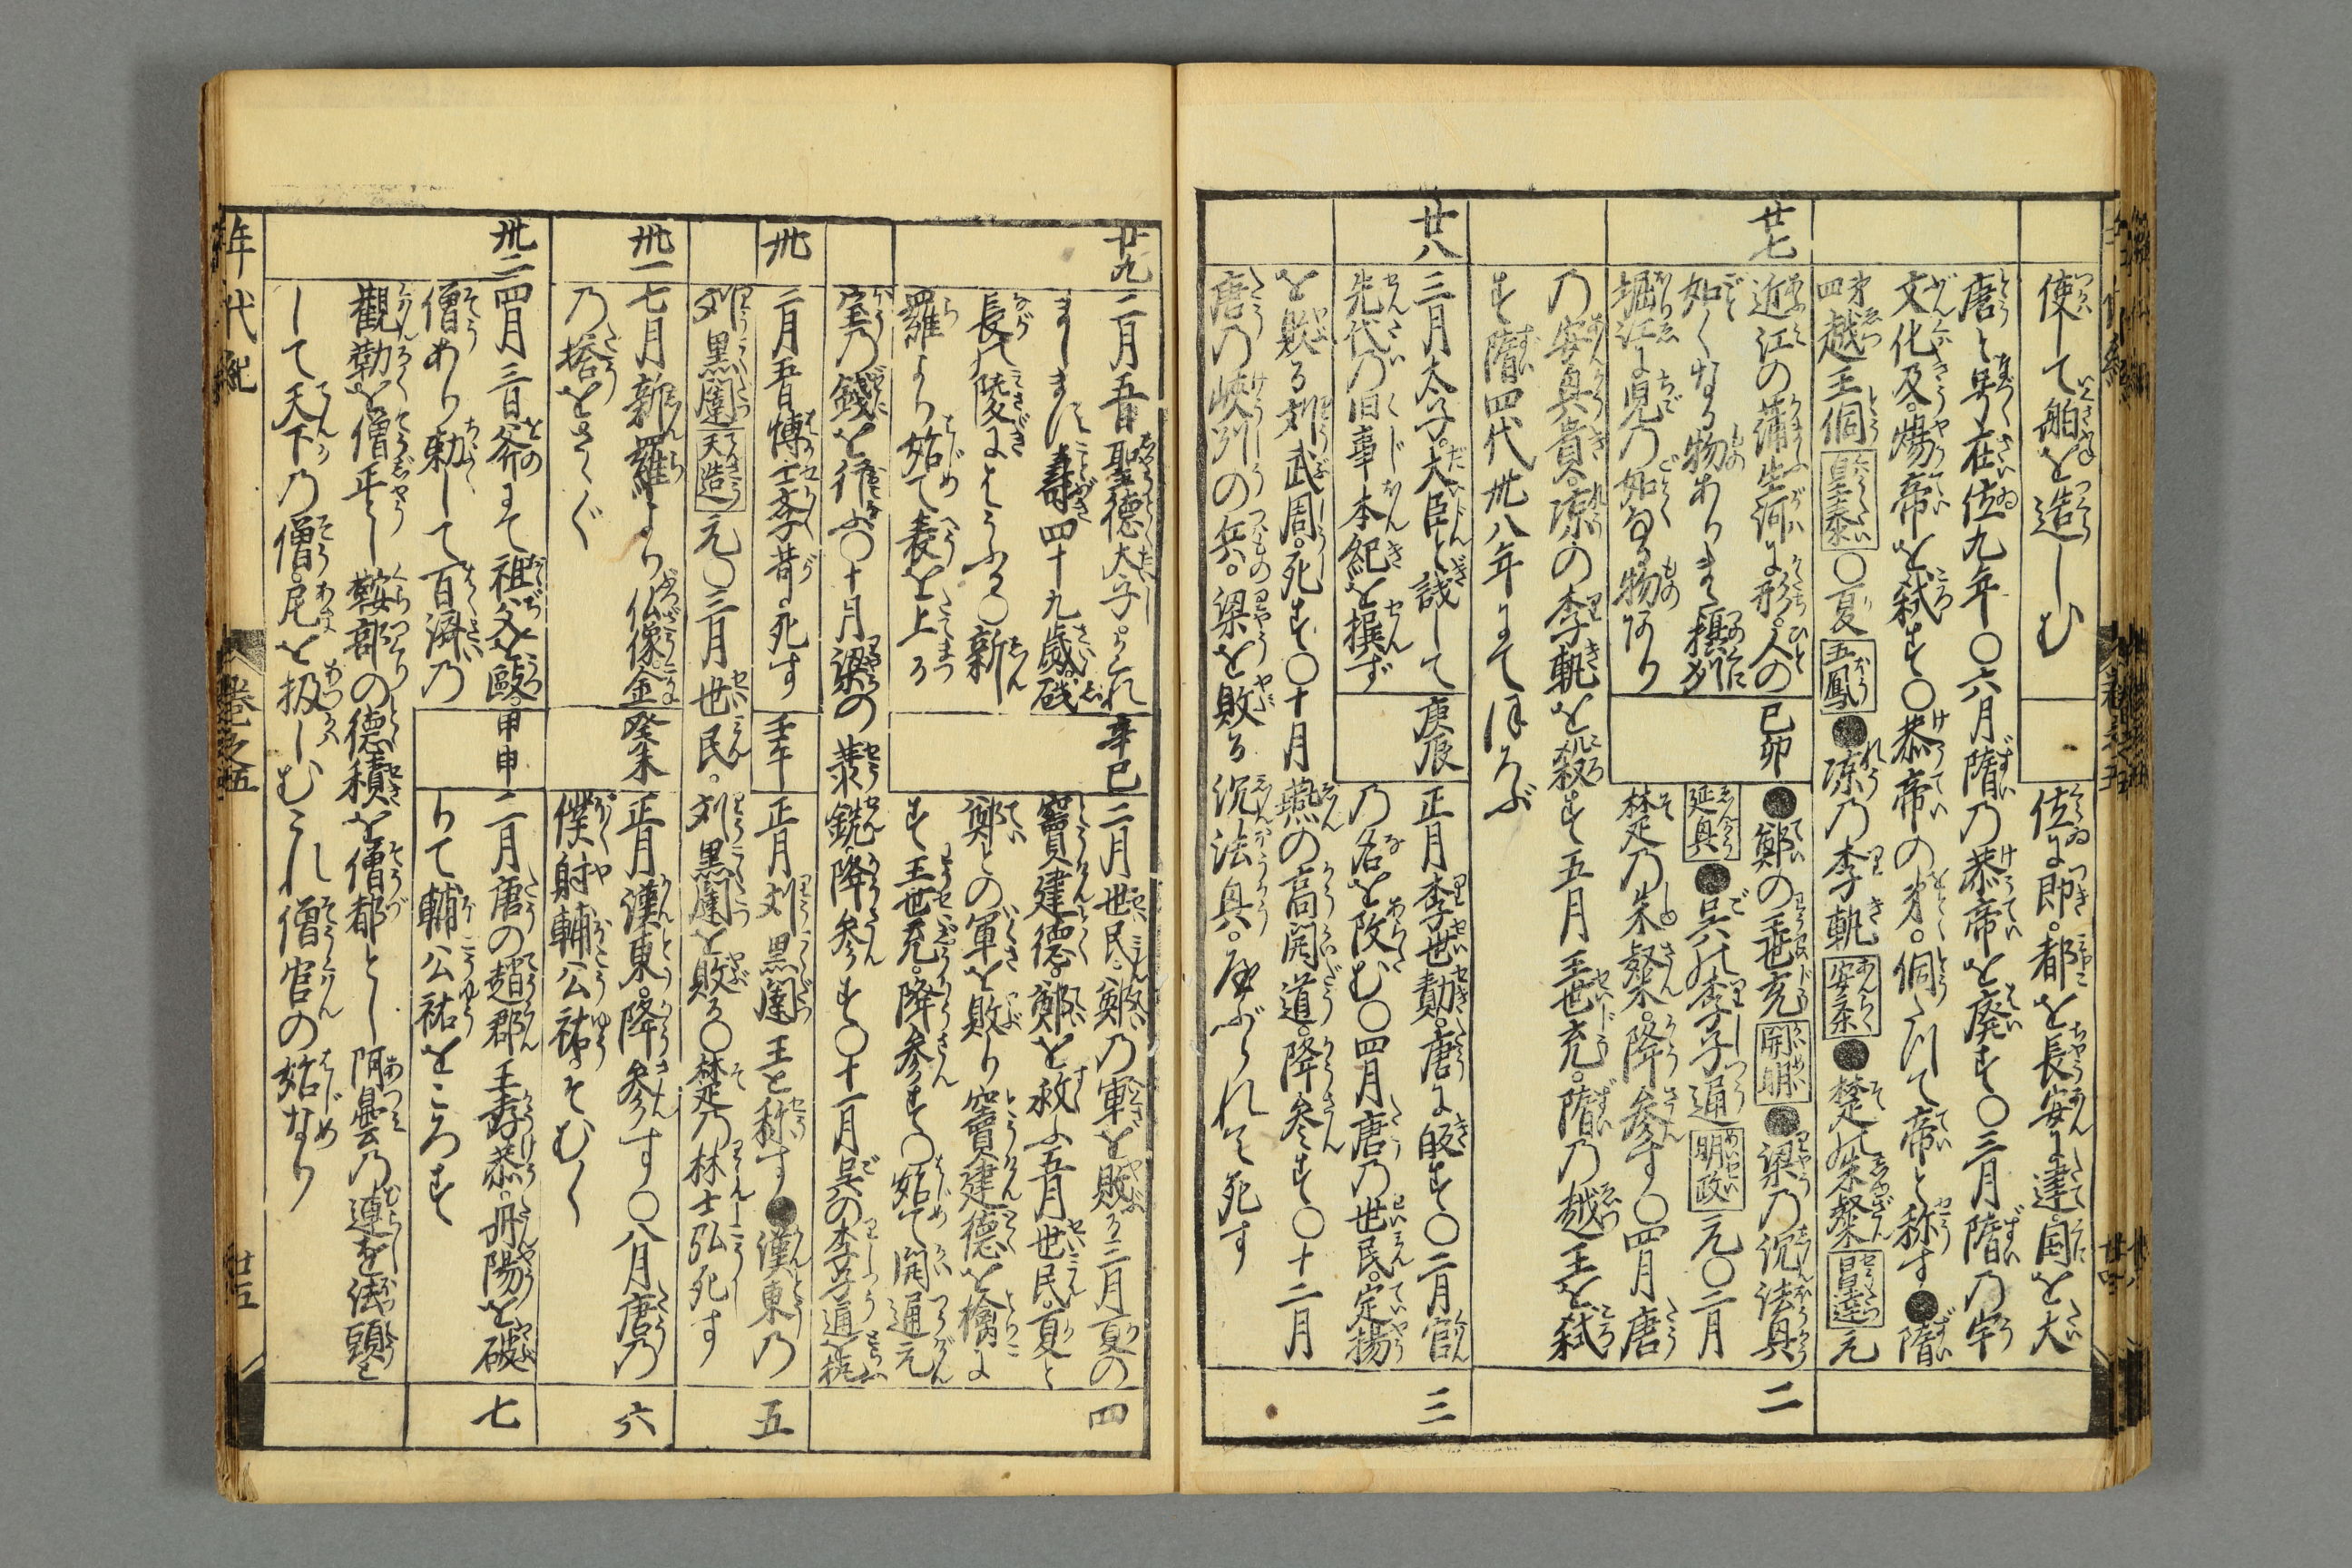 使して舶を造しむ
位に即。都を長安に建。国を大
唐と号在位九年〇六月隋の恭帝を廃す〇三月隋の宇
文化及。煬帝を弑す〇恭帝の弟。侗たつて帝と称す●隋
弟四越王侗 皇泰〇夏 五鳳●涼の李軌 安楽●楚の朱粲 昌達元
廿七
近江の蒲生河に形。人の
如くなる物ありまた摂州
堀江に児の如なる物あり
己卯
●鄭の王世充 開明●梁の沈法興
延興●呉の李子通 明政元〇二月
楚の朱粲。降参す〇四月唐
二
の安興貴。涼の李軌を殺す五月王世充。隋の越王を弑
す隋四代卅八年にてほろぶ
廿八
三月太子。大臣と議して
先代の旧事本紀を撰ず
庚辰
正月李世勣。唐に皈す〇二月官
の名を改む〇四月唐の世民。定揚
三
を敗る劉武周。死す〇十月燕の高開道。降参す〇十二月
唐の峽州の兵。梁を敗る沈法興。やぶられて死す
廿九
二月五日聖徳太子。かくれ
まします寿四十九歳磯
長の陵にはうふる〇新
羅より始て表を上る
辛巳
二月世民。鄭の軍を敗る三月夏の
竇建徳。鄭を救ふ五月世民。夏と
鄭との軍を敗り竇建徳を擒に
す王世充。降参す〇始て開通元
四
宝の銭を行ふ〇十月梁の蕭銑。降参す〇十一月呉の李子通
卅
二月五日博士李昔。死す
壬午
正月劉黒闥王と称す●漢東の
五
劉黒闥 天造元〇三月世民。劉黒闥を敗る〇楚の林士弘死す
卅一
七月新羅より仏像。金
の塔をさゝぐ
癸未
正月漢東。降参す〇八月唐の
僕射輔公祐。そむく
六
卅二
四月三日斧にて祖父を殴。
僧あり勅して百済の
甲申
二月唐の趙郡王孝恭。丹陽を破
りて輔公祐をころす
七
観勒を僧正とし鞍部の徳積を僧都とし阿曇の連を法頭と
して天下の僧。尼を扱しむこれ僧官の始なり
年代紀
巻之五
廿五